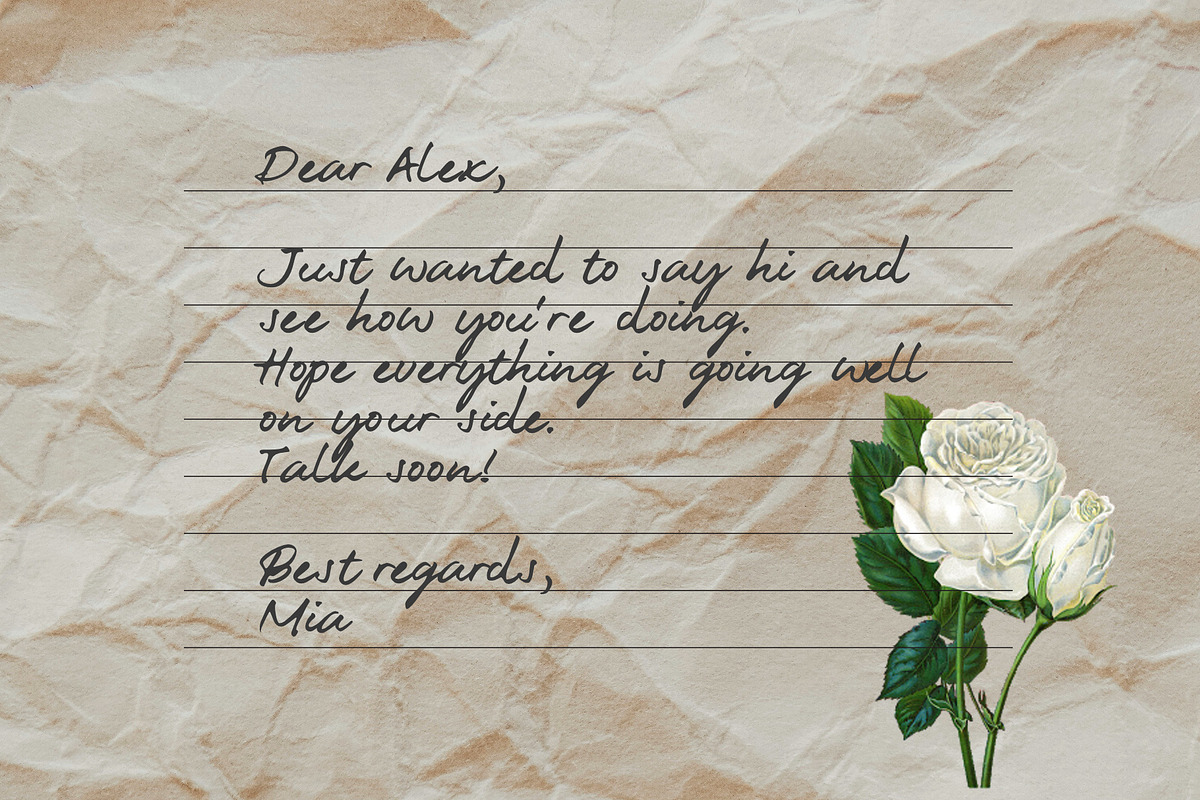 Dear Alex,
Just wanted to say hi and
see how you're doing.
Hope everything is going well
on your side.
Talk soon!
Best regards,
Mia